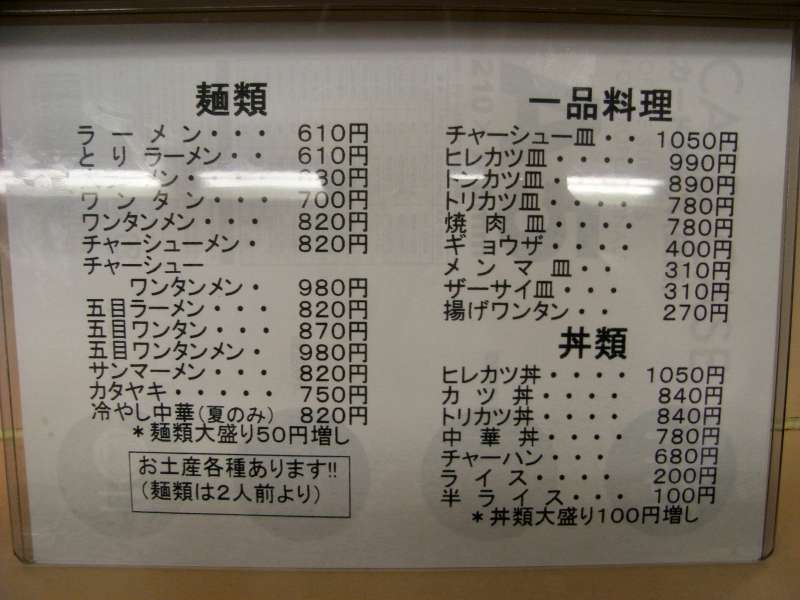 麺類
ラーメン・・・ 610円
とりラーメン・・ 610円
メン・・ 30円
ワンタン・・・ 700円
ワンタンメン・・・ 820円
チャーシューメン・ 820円
チャーシュー
ワンタンメン・ 980円
五目ラーメン・・・ 820円
五目ワンタン・・・ 870円
五目ワンタンメン・ 980円
サンマーメン・・・ 820円
カタヤキ・・・・・ 750円
冷やし中華(夏のみ) 820円
*麺類大盛り50円増し
お土産各種あります!!
(麺類は2人前より)
一品料理
チャーシュー皿・・ 1050円
ヒレカツ皿・・・・ 990円
トンカツ皿・・・・ 890円
トリカツ皿・・・・ 780円
焼肉皿・・・・ 780円
ギョウザ・・・・ 400円
メンマ皿・・ 310円
ザーサイ皿・・・ 310円
揚げワンタン・・ 270円
丼類
ヒレカツ丼・・・・ 1050円
カツ丼・・・・ 840円
トリカツ丼・・・・ 840円
中華丼・・・・ 780円
チャーハン・・・・ 680円
ライス・・・・ 200円
半ライス・・・ 100円
*丼類大盛り100円増し